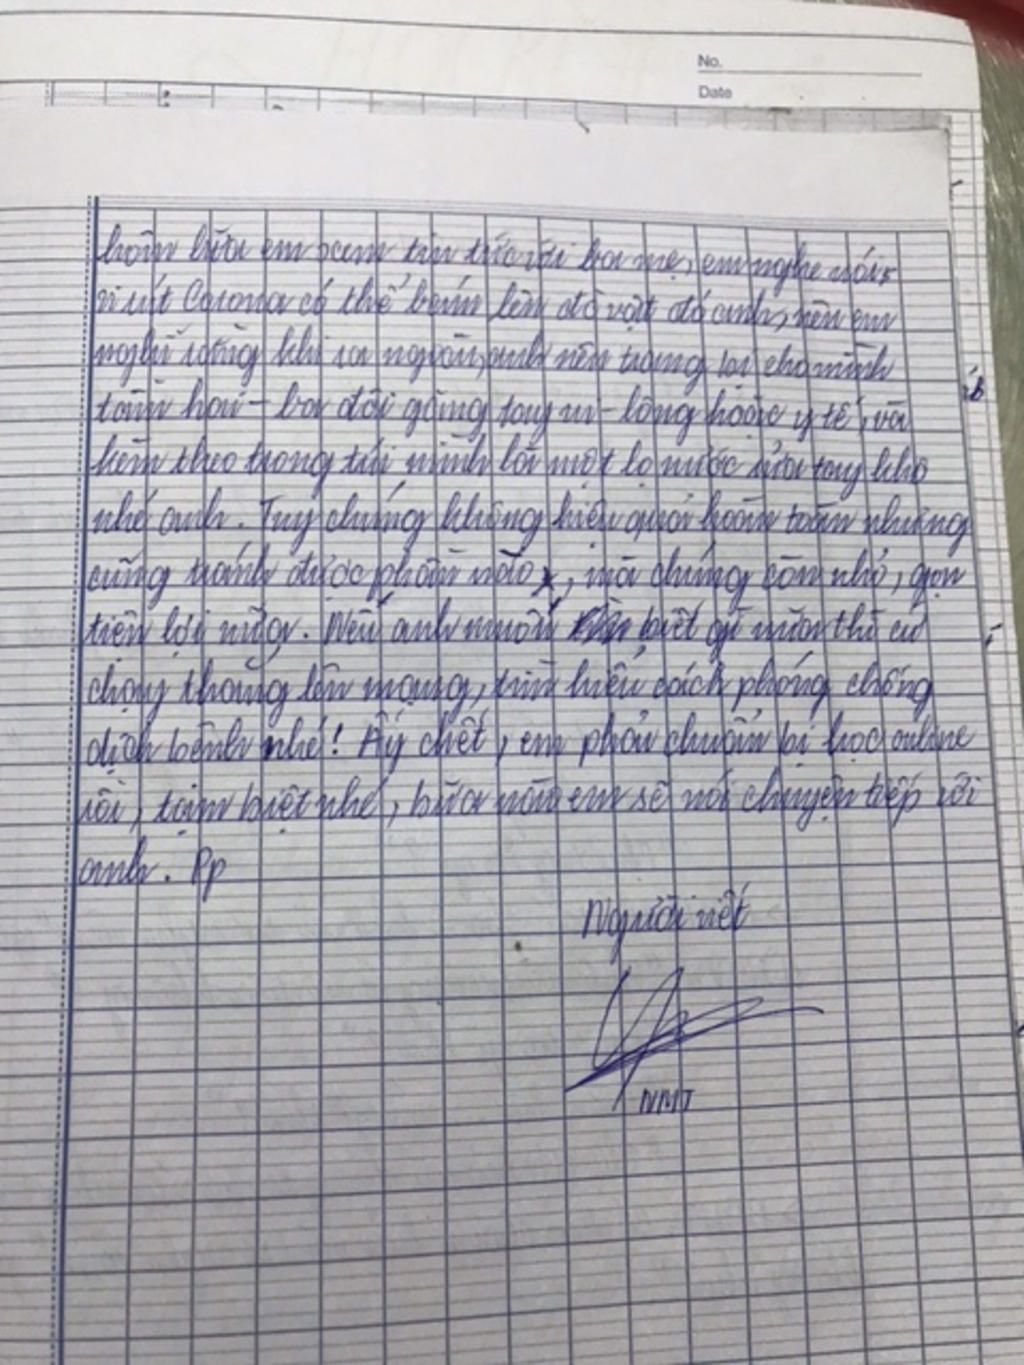 No.
Date
hôm bữa em xem tin tức với ba mẹ, em nghe nói
vi rút Corona có thể bám lên đồ vật đó anh, nên em
nghĩ rằng khi ra ngoài, anh nên trang bị cho mình
tầm hai - ba đôi găng tay ni - lông hoặc y tế, và
kèm theo trong túi mình là một lọ nước rửa tay khô
nhé anh. Tuy chúng không hiệu quả hoàn toàn nhưng
cũng tránh được phần nào, mà chúng còn nhỏ, gọn
tiện lợi nữa. Nếu anh muốn biết gì nữa thì cứ
chạy thẳng lên mạng, tìm hiểu cách phóng chống
dịch bệnh nhé! Ấy chết, em phải chuẩn bị học online
rồi, tạm biệt nhé, bữa nào em sẽ nói chuyện tiếp với
anh. Pp
Người viết
NMT